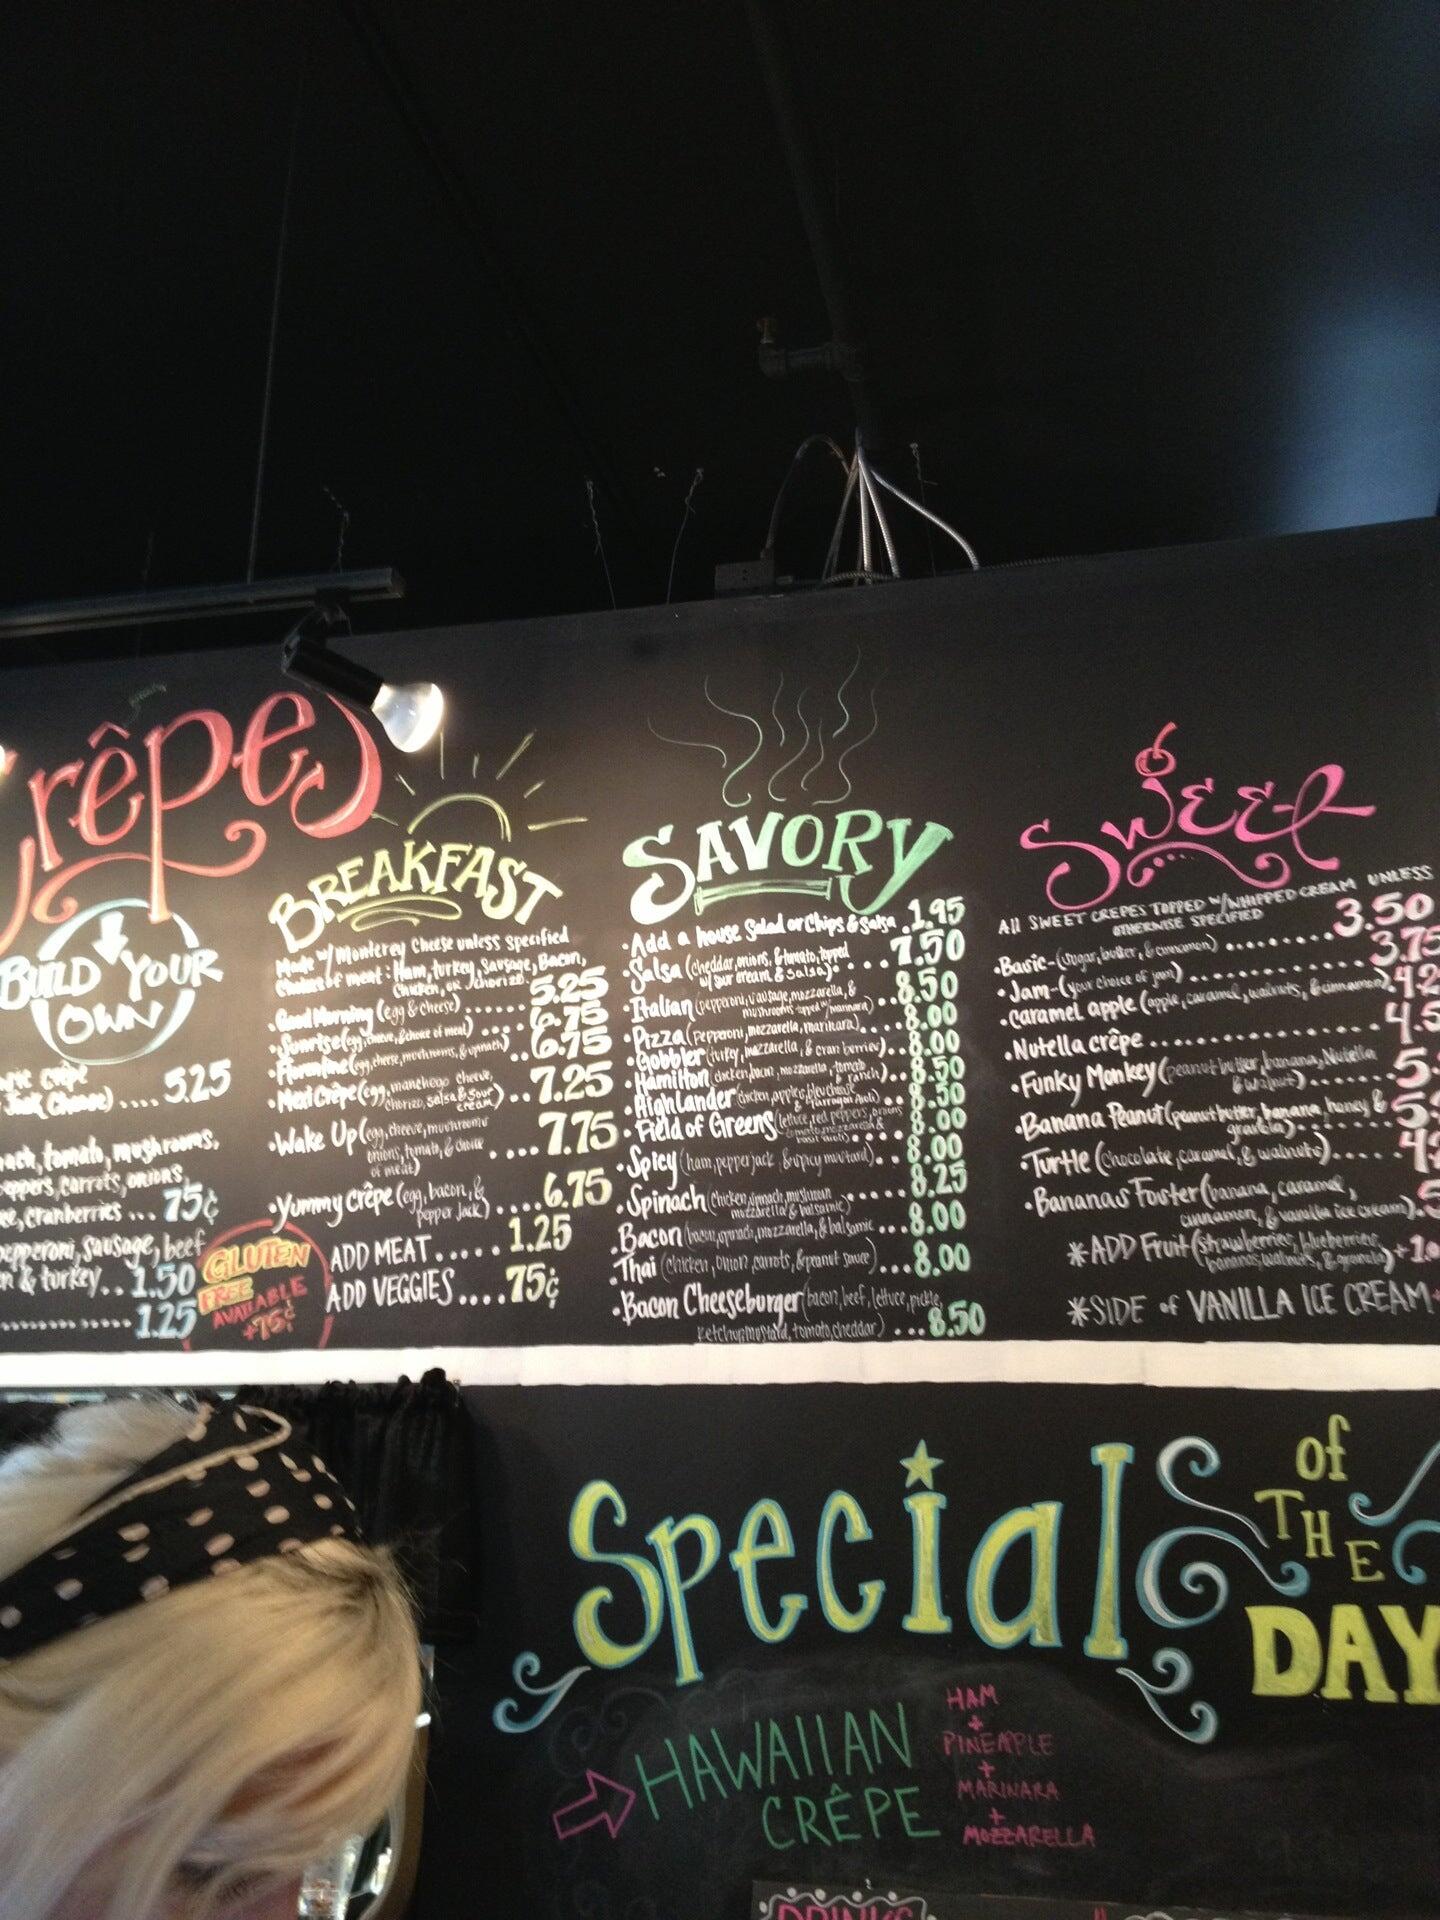 Crêpes
BUILD YOUR
OWN
crêpe
Jack Cheese) .... 5.25
tomato, mushrooms,
peppers, carrots, onions,
cranberries ... 75¢
pepperoni, sausage, beef
& turkey.. 1.50
1.25
GLUTEN
FREE
AVAILABLE
+75¢
BREAKFAST
Made w/ Monterey Cheese unless specified
Choice of meat: Ham, turkey, sausage, Bacon,
Chicken, or chorizo
•Good Morning (egg & cheese) ...... 5.25
•Sunrise (egg, cheese, & choice of meat) 6.75
•Florentine (egg, cheese, mushrooms, & spinach) .. 6.75
•Mexi Crêpe (egg, manchego cheese,
chorizo, salsa & sour
cream) .. 7.25
•Wake Up (egg, cheese, mushrooms
onions, tomato, & choice
of meat) .... 7.75
•Yummy crêpe (egg, bacon, &
pepper jack) .... 6.75
ADD MEAT..... 1.25
ADD VEGGIES.... 75¢
SAVORY
•Add a house Salad or Chips & Salsa .1.95
•Salsa (cheddar, onions, & tomato, topped
w/ sour cream & salsa) ... 7.50
•Italian (pepperoni, sausage, mozzarella, &
mushrooms topped w/ marinara) 8.50
•Pizza (pepperoni, mozzarella, marinara) .... 8.00
•Gobbler (turkey, mozzarella, & cranberries) .... 8.00
•Hamilton (chicken, bacon, mozzarella, tomato
& ranch) 8.50
•Highlander (chicken, apples, bleu cheese
8.50
•Field of Greens (lettuce, red peppers, onions
8.00
•Spicy (ham, pepper jack & spicy mustard) .. 8.00
•Spinach (chicken, spinach, mushroom
mozzarella & balsamic) 8.25
•Bacon (bacon, spinach, mozzarella, & balsamic 8.00
•Thai (chicken, onion, carrots, & peanut sauce) ... 8.00
•Bacon Cheeseburger (bacon, beef, lettuce, pickle,
ketchup, mustard, tomato, cheddar) ... 8.50
SWEET
All SWEET CREPES TOPPED W/WHIPPED CREAM UNLESS
OTHERWISE SPECIFIED
•Basic- (sugar, butter, & cinnamon) ........ 3.50
•Jam- (your choice of jam) ........ 3.75
•Caramel apple (apple, caramel, walnuts, & cinnamon)
•Nutella crêpe
•Funky Monkey (peanut butter, banana, Nutella
& walnut)
•Banana Peanut (peanut butter, banana, honey &
granola)
•Turtle (chocolate, caramel, & walnuts)
•Bananas Foster (banana, caramel,
cinnamon, & vanilla ice cream)
*ADD Fruit (strawberries, blueberries,
bananas, walnuts, & granola)
*SIDE of VANILLA ICE CREAM
Special of THE DAY
HAWAIIAN
CRÊPE
HAM
+
PINEAPPLE
+
MARINARA
+
MOZZARELLA
DRINKS